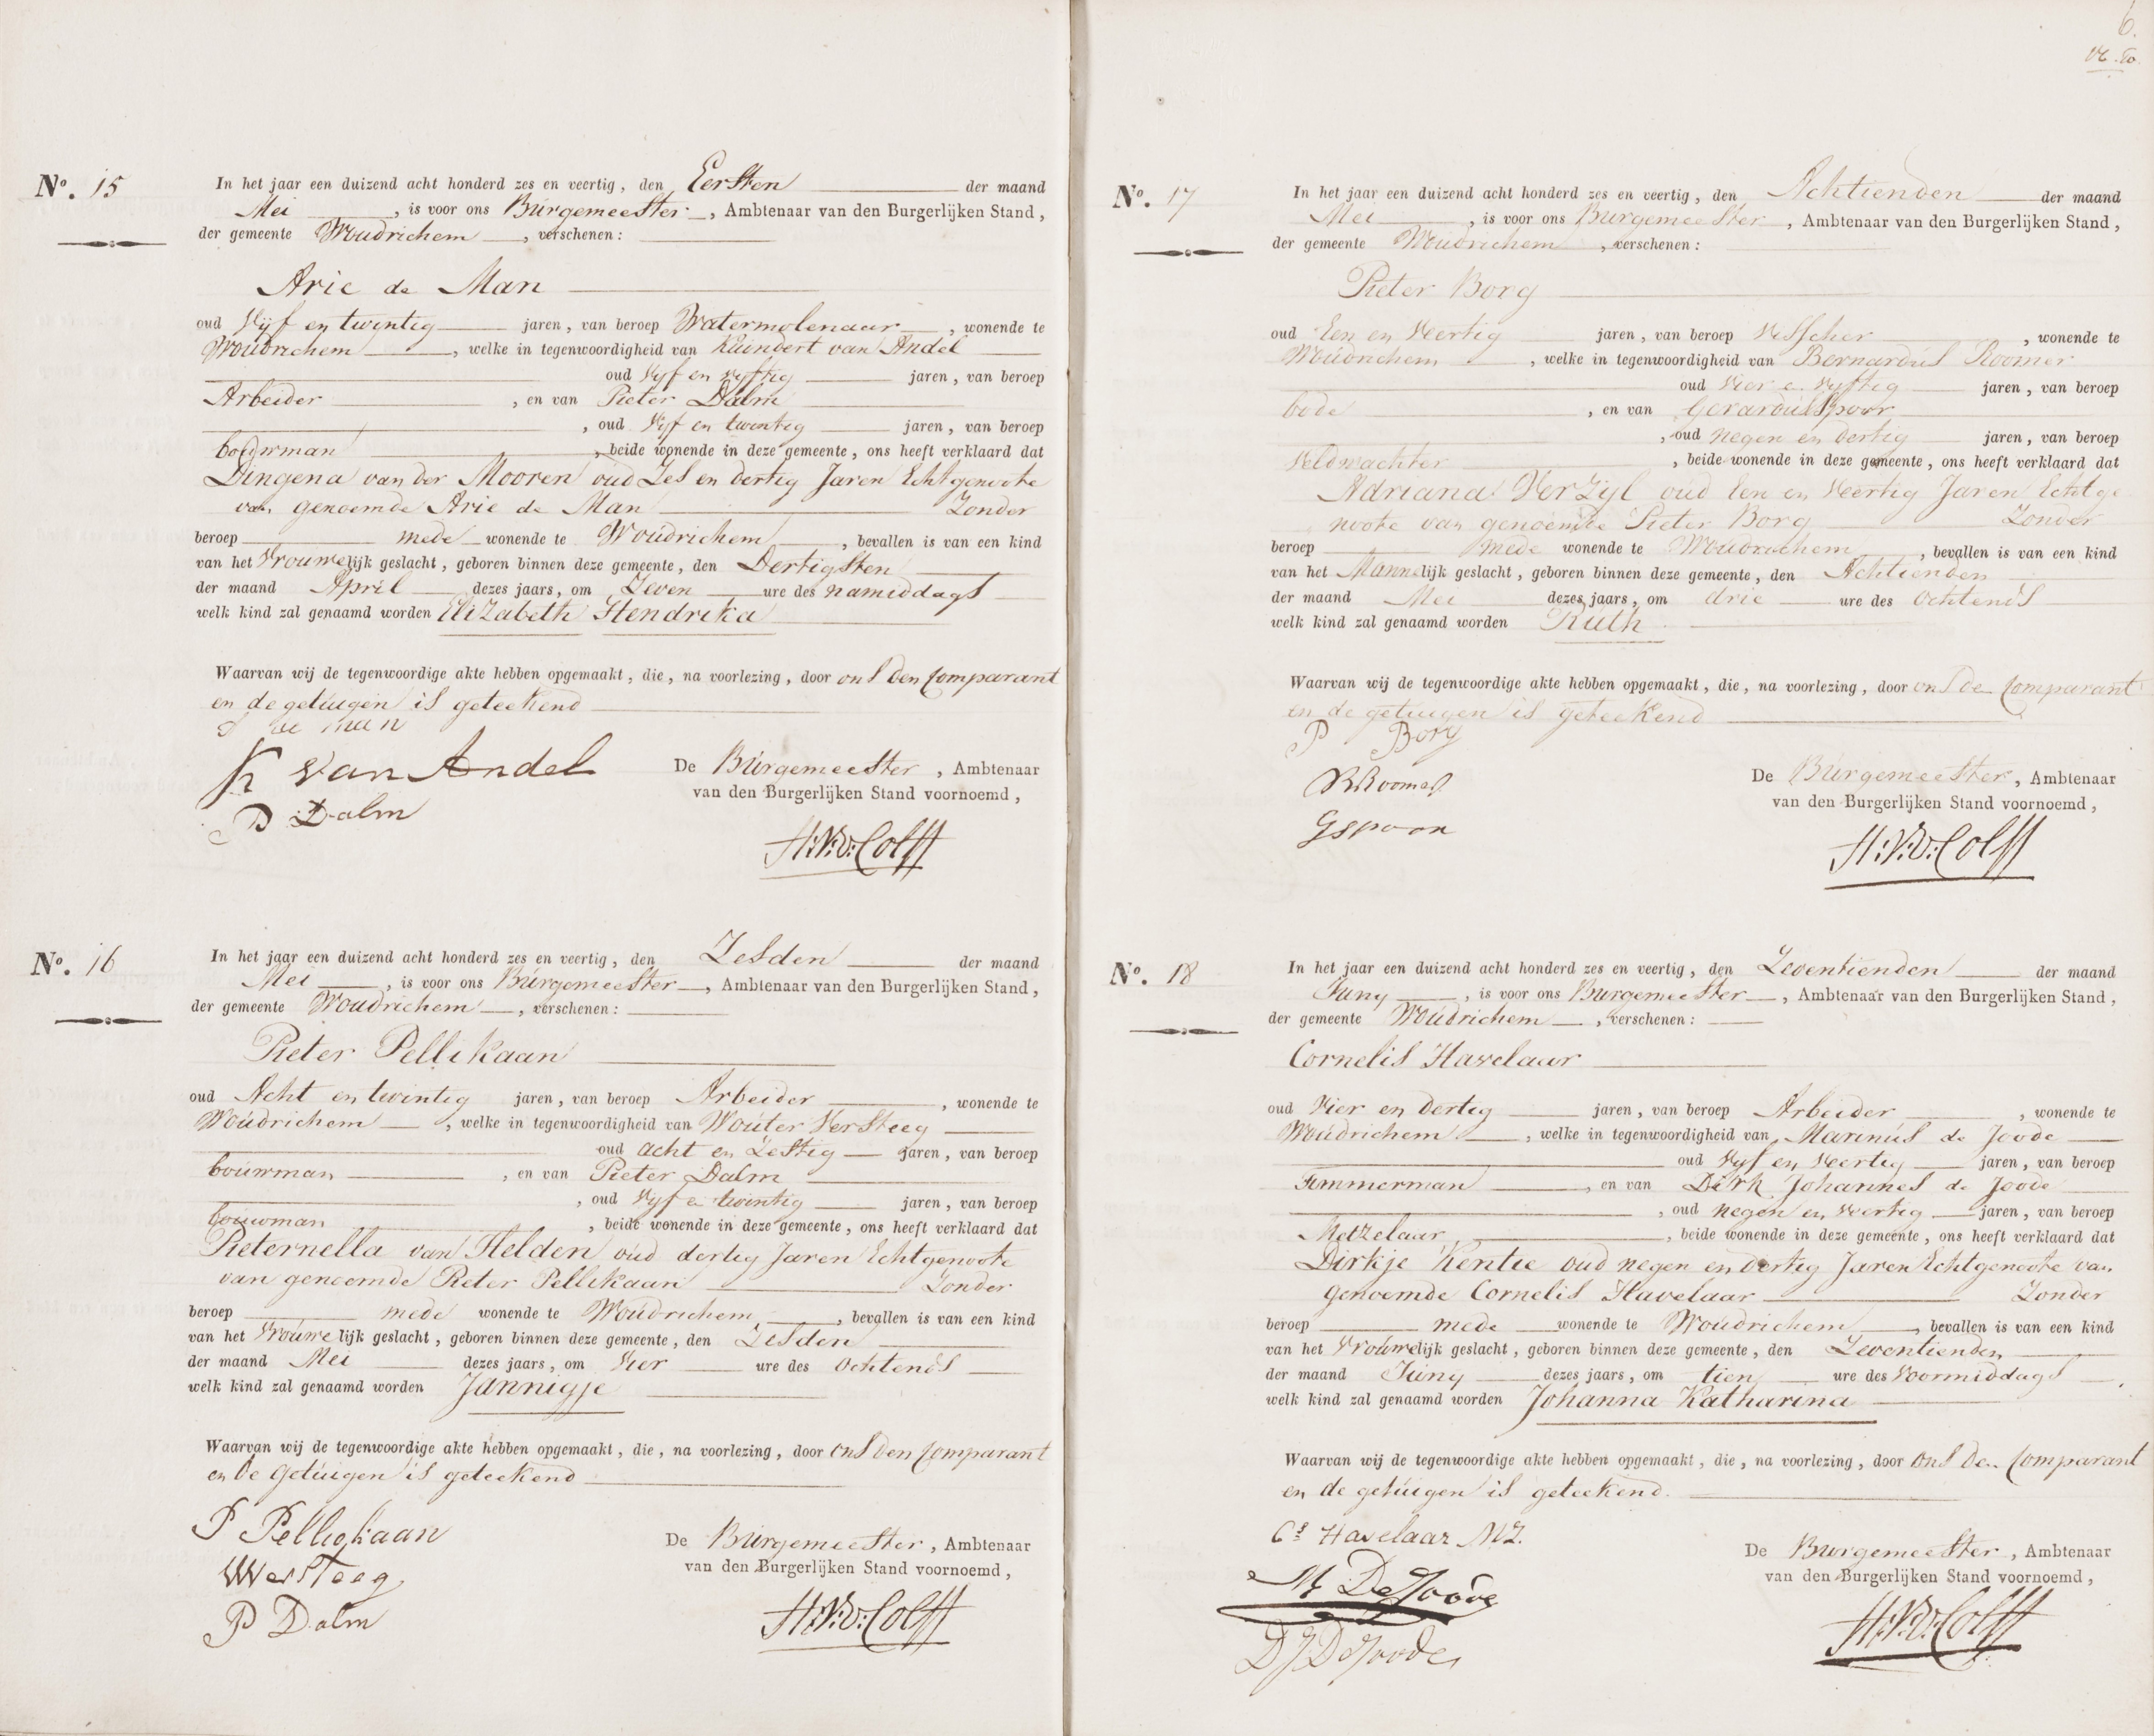 No. 15
In het jaar een duizend acht honderd zes en veertig, den Eersten der maand
Mei, is voor ons Burgemeester, Ambtenaar van den Burgerlijken Stand,
der gemeente Woudrichem, verschenen:
Arie de Man
oud Vyf en twintig jaren, van beroep Watermolenaar, wonende te
Woudrichem, welke in tegenwoordigheid van Kluindert van Andel
oud Vyf en vyftig jaren, van beroep
Arbeider, en van Pieter Dalm
, oud Vyf en twintig jaren, van beroep
bouwman, beide wonende in deze gemeente, ons heeft verklaard dat
Dingena van der Mooren oud Zes en dertig Jaren Echtgenoote
van genoemde Arie de Man Zonder
beroep mede wonende te Woudrichem, bevallen is van een kind
van het Vrouwelijk geslacht, geboren binnen deze gemeente, den Dertigsten
der maand April dezes jaars, om Zeven ure des namiddags
welk kind zal genaamd worden Elizabeth Hendrika
Waarvan wij de tegenwoordige akte hebben opgemaakt, die, na voorlezing, door ons den Comparant
en de getuigen is geteekend
de man
K van Andel
P Dalm
De Burgemeester, Ambtenaar
van den Burgerlijken Stand voornoemd,
H:V:D:Colff
No. 16
In het jaar een duizend acht honderd zes en veertig, den Zesden der maand
Mei, is voor ons Burgemeester, Ambtenaar van den Burgerlijken Stand,
der gemeente Woudrichem, verschenen:
Pieter Pellikaan
oud Acht en twintig jaren, van beroep Arbeider, wonende te
Woudrichem, welke in tegenwoordigheid van Wouter Versteeg
oud acht en Zestig jaren, van beroep
bouwman, en van Pieter Dalm
, oud Vyf en twintig jaren, van beroep
bouwman, beide wonende in deze gemeente, ons heeft verklaard dat
Pieternella van Helden oud dertig Jaren Echtgenoote
van genoemde Pieter Pellikaan Zonder
beroep mede wonende te Woudrichem, bevallen is van een kind
van het Vrouwelijk geslacht, geboren binnen deze gemeente, den Zesden
der maand Mei dezes jaars, om Vier ure des ochtends
welk kind zal genaamd worden Jannigje
Waarvan wij de tegenwoordige akte hebben opgemaakt, die, na voorlezing, door ons den Comparant
en de Getuigen is geteekend
P Pellickaan
WVersteeg
P Dalm
De Burgemeester, Ambtenaar
van den Burgerlijken Stand voornoemd,
H:V:D:Colff
6.
No. 17
In het jaar een duizend acht honderd zes en veertig, den Achtienden der maand
Mei, is voor ons Burgemeester, Ambtenaar van den Burgerlijken Stand,
der gemeente Woudrichem, verschenen:
Pieter Borg
oud Een en Veertig jaren, van beroep Visscher, wonende te
Woudrichem, welke in tegenwoordigheid van Bernardus Roomer
oud Vier en vyftig jaren, van beroep
bode, en van Gerardus Spoor
, oud negen en dertig jaren, van beroep
Veldwachter, beide wonende in deze gemeente, ons heeft verklaard dat
Adriana Verzyl oud Een en Veertig Jaren Echtge
noote van genoemde Pieter Borg Zonder
beroep mede wonende te Woudrichem, bevallen is van een kind
van het Mannelijk geslacht, geboren binnen deze gemeente, den Achtienden
der maand Mei dezes jaars, om drie ure des ochtends
welk kind zal genaamd worden Ruth
Waarvan wij de tegenwoordige akte hebben opgemaakt, die, na voorlezing, door ons de Comparant
en de getuigen is geteekend
P Borg
BRoomer
Gspoor
De Burgemeester, Ambtenaar
van den Burgerlijken Stand voornoemd,
H:V:D:Colff
No. 18
In het jaar een duizend acht honderd zes en veertig, den Zeventienden der maand
Juny, is voor ons Burgemeester, Ambtenaar van den Burgerlijken Stand,
der gemeente Woudrichem, verschenen:
Cornelis Havelaar
oud Vier en dertig jaren, van beroep Arbeider, wonende te
Woudrichem, welke in tegenwoordigheid van Marinus de Joode
oud Vyf en Veertig jaren, van beroep
Timmerman, en van Dirk Johannes de Joode
, oud negen en veertig jaren, van beroep
Metzelaar, beide wonende in deze gemeente, ons heeft verklaard dat
Dirkje Kentie oud negen en dertig Jaren Echtgenoote van
genoemde Cornelis Havelaar Zonder
beroep mede wonende te Woudrichem, bevallen is van een kind
van het Vrouwelijk geslacht, geboren binnen deze gemeente, den Zeventienden
der maand Juny dezes jaars, om tien ure des Voormiddags
welk kind zal genaamd worden Johanna Katharina
Waarvan wij de tegenwoordige akte hebben opgemaakt, die, na voorlezing, door ons den Comparant
en de getuigen is geteekend.
Cs Havelaar MZ.
M De Joode
D J De Joode
De Burgemeester, Ambtenaar
van den Burgerlijken Stand voornoemd,
H:V:D:Colff